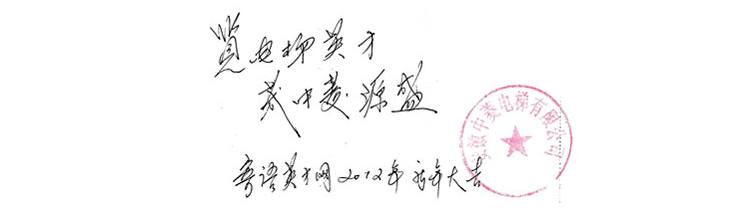 览电梯英才
成中菱源盛
寄语英才网2012年新年大吉
安徽中菱电梯有限公司